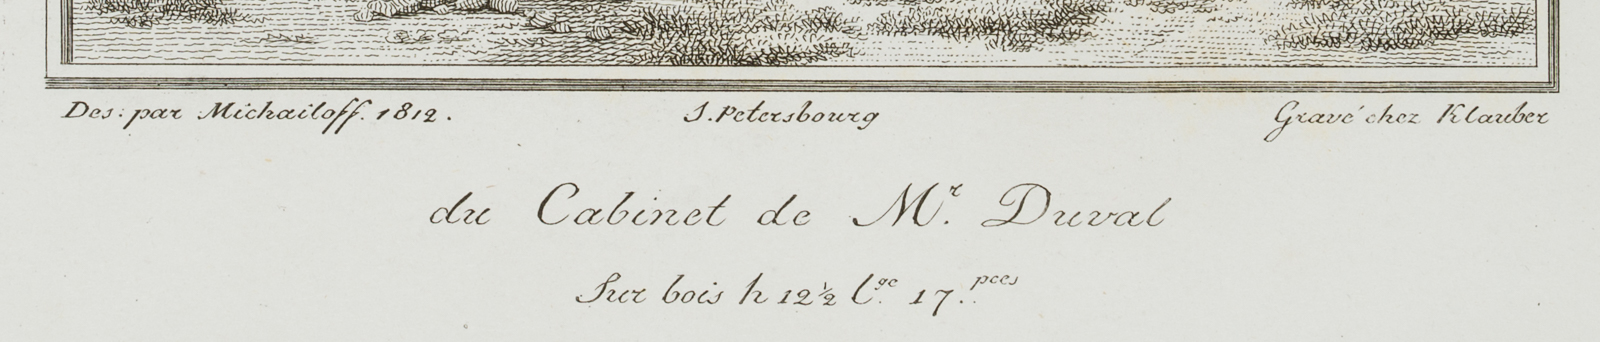 Des: par Michailoff. 1812. S. Petersbourg Gravé chez Klauber
du Cabinet de Mr. Duval
Sur bois h 12½ lge. 17. pces